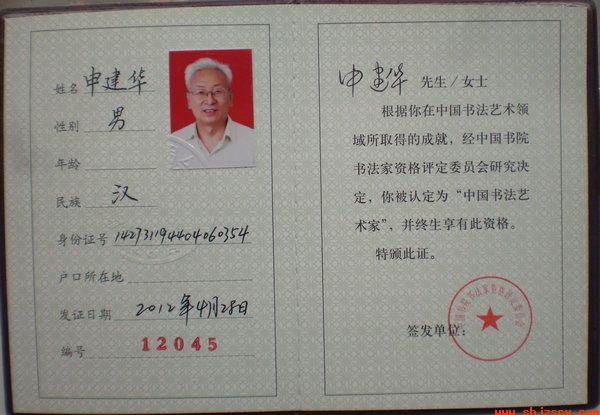 姓名 申建华
性别 男
年龄
民族 汉
身份证号 142731194404060354
户口所在地
发证日期 2012年4月28日
编号 12045
申建华 先生/女士
根据你在中国书法艺术领
域所取得的成就，经中国书院
书法家资格评定委员会研究决
定，你被认定为“中国书法艺
术家”，并终生享有此资格。
特颁此证。
签发单位：